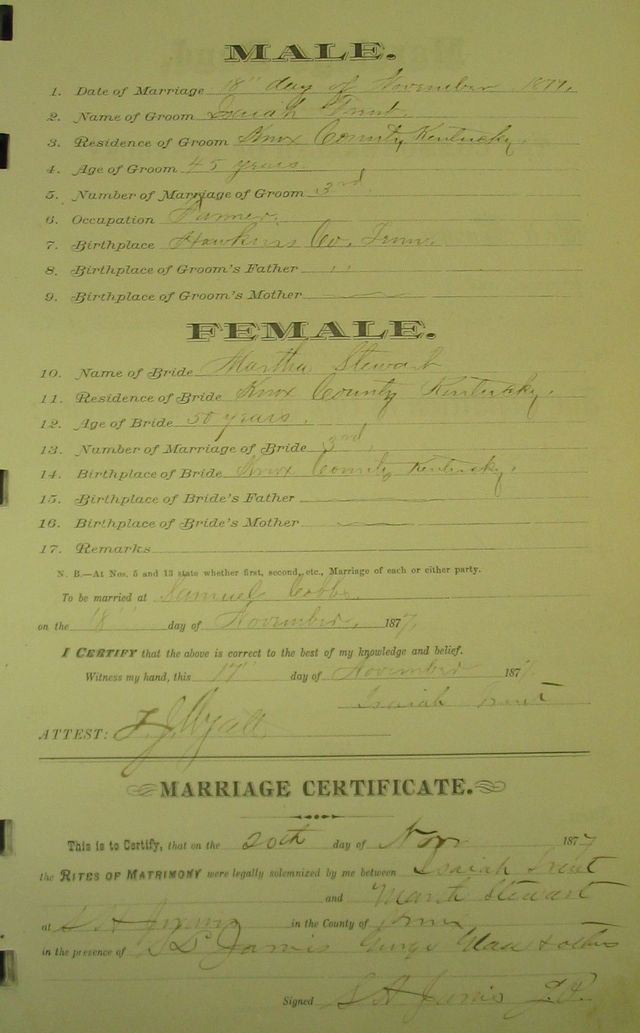 MALE.
1. Date of Marriage 18" day of November 1877.
2. Name of Groom Isaiah Trent.
3. Residence of Groom Knox County Kentucky.
4. Age of Groom 45 years
5. Number of Marriage of Groom 3rd.
6. Occupation Farmer.
7. Birthplace Hawkins Co. Tenn.
8. Birthplace of Groom's Father " "
9. Birthplace of Groom's Mother
FEMALE.
10. Name of Bride Martha Stewart
11. Residence of Bride Knox County Kentucky.
12. Age of Bride 50 years.
13. Number of Marriage of Bride
14. Birthplace of Bride Knox County Kentucky.
15. Birthplace of Bride's Father
16. Birthplace of Bride's Mother
17. Remarks
N. B.—At Nos. 5 and 13 state whether first, second, etc., Marriage of each or either party.
To be married at Samuel
on the 18" day of November, 1877,
I CERTIFY that the above is correct to the best of my knowledge and belief.
Witness my hand, this 17" day of November 1877.
Isaiah Trent
ATTEST:
MARRIAGE CERTIFICATE.
This is to Certify, that on the 20th day of Nov 1877
the RITES OF MATRIMONY were legally solemnized by me between Isaiah Trent
and Stewart
at S A in the County of Knox
in the presence of Jarvis & others
Signed S A Jarvis